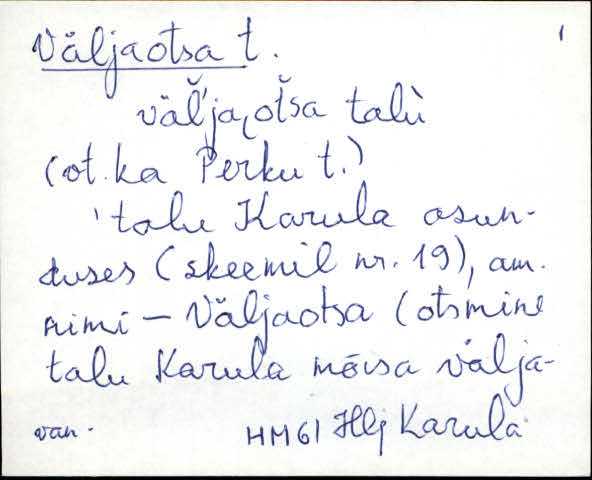 Väljaotsa t. 1
väl̆'ja‿ot̆sa talù
(ot. ka Perku t.)
'talu Karula asun-
duses (skeemil nr. 19), am.
nimi – Väljaotsa (otsmine
talu Karula mõisa välja-
van. HM61 Hlj Karula